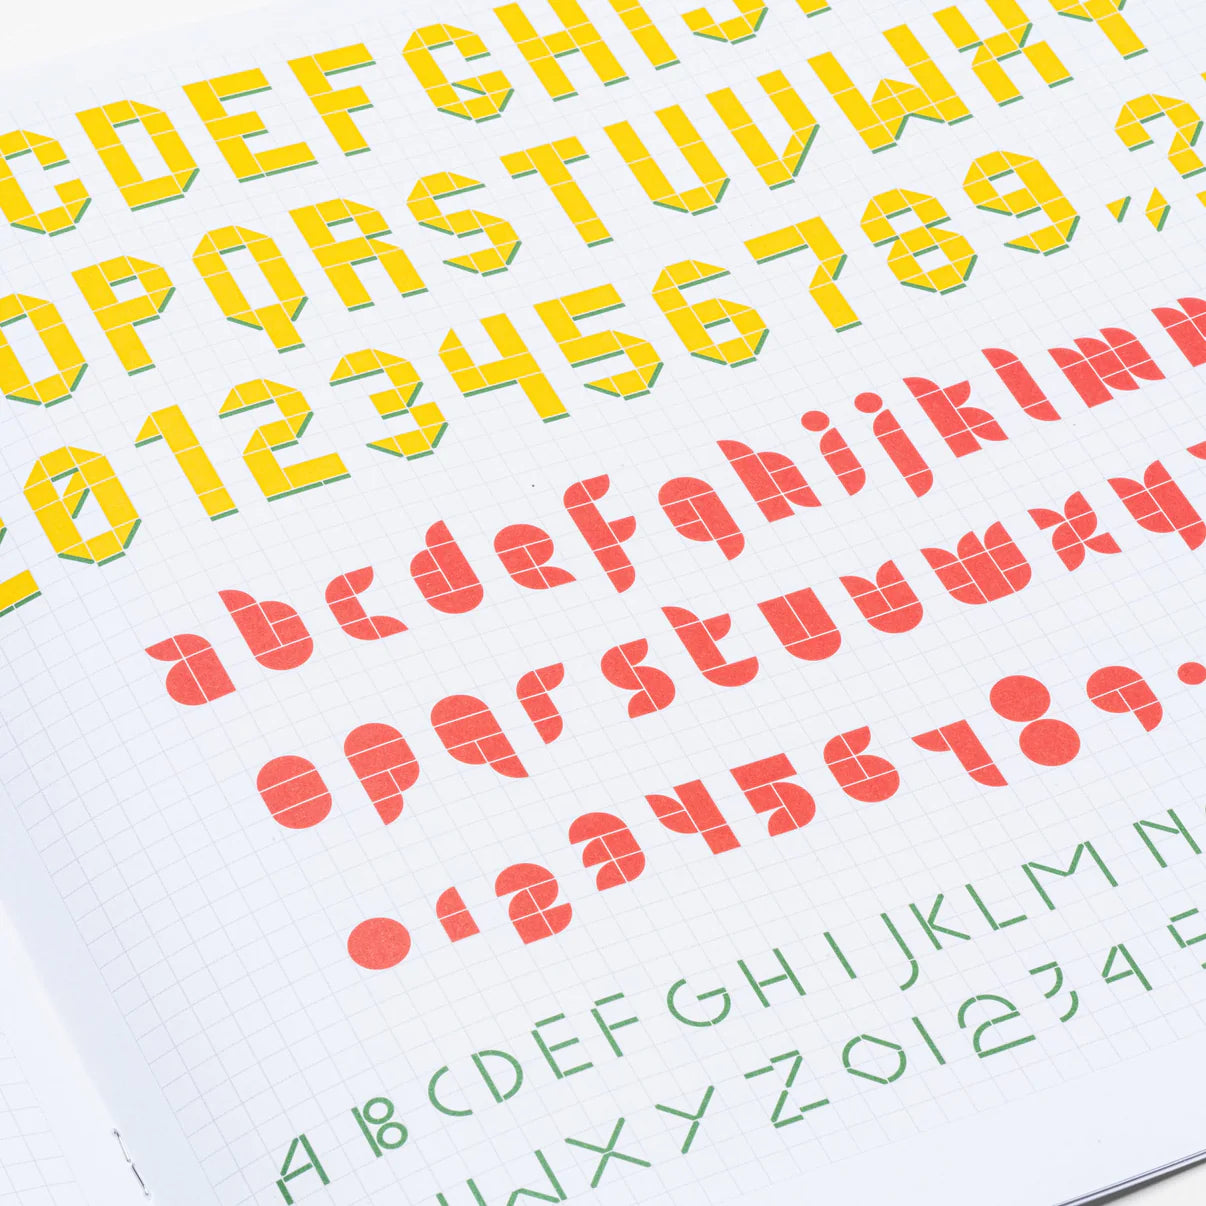 CDEFGHIJ
OPQRSTUVWXY
Z0123456789,,?
abcdefghijklmn
opqrstuvwxy
0123456789.
ABCDEFGHIJKLMN
WXYZ012345